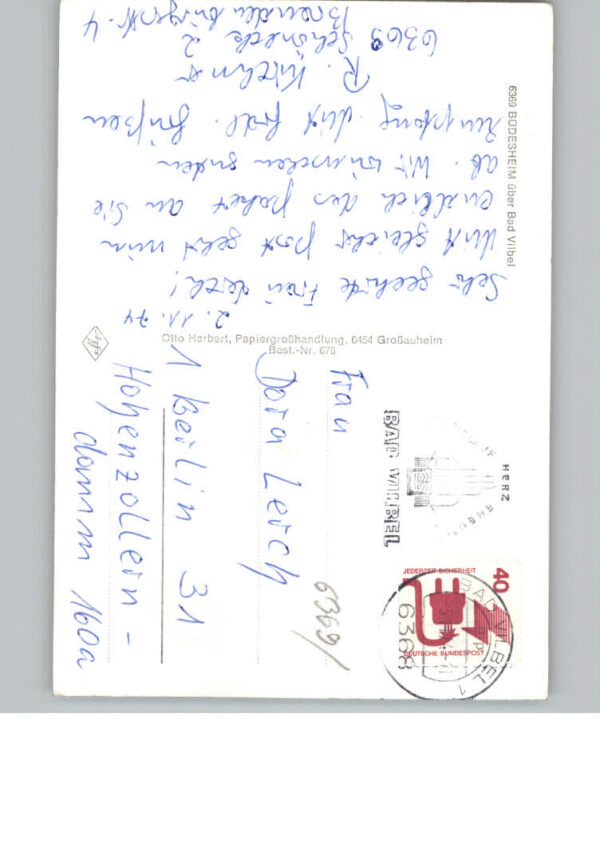 6369 BÜDESHEIM über Bad Vilbel
2.11.74
Sehr geehrte Frau Lerch!
Mit gleicher Post geht nun
endlich das Paket an Sie
ab. Wir wünschen guten
Empfang. Mit frdl. Grüßen
R. Kirchner
6369 Schöneck 2
Brandenburgerstr. 4
Otto Herbert, Papiergroßhandlung, 6454 Großauheim
Best.-Nr. 676
Agfa
Frau
Dora Lerch
1 Berlin 31
Hohenzollern-
damm 160a
6369/
BAD VILBEL
HERZ
JEDERZEIT SICHERHEIT
40
DEUTSCHE BUNDESPOST
6368 BAD VILBEL 1